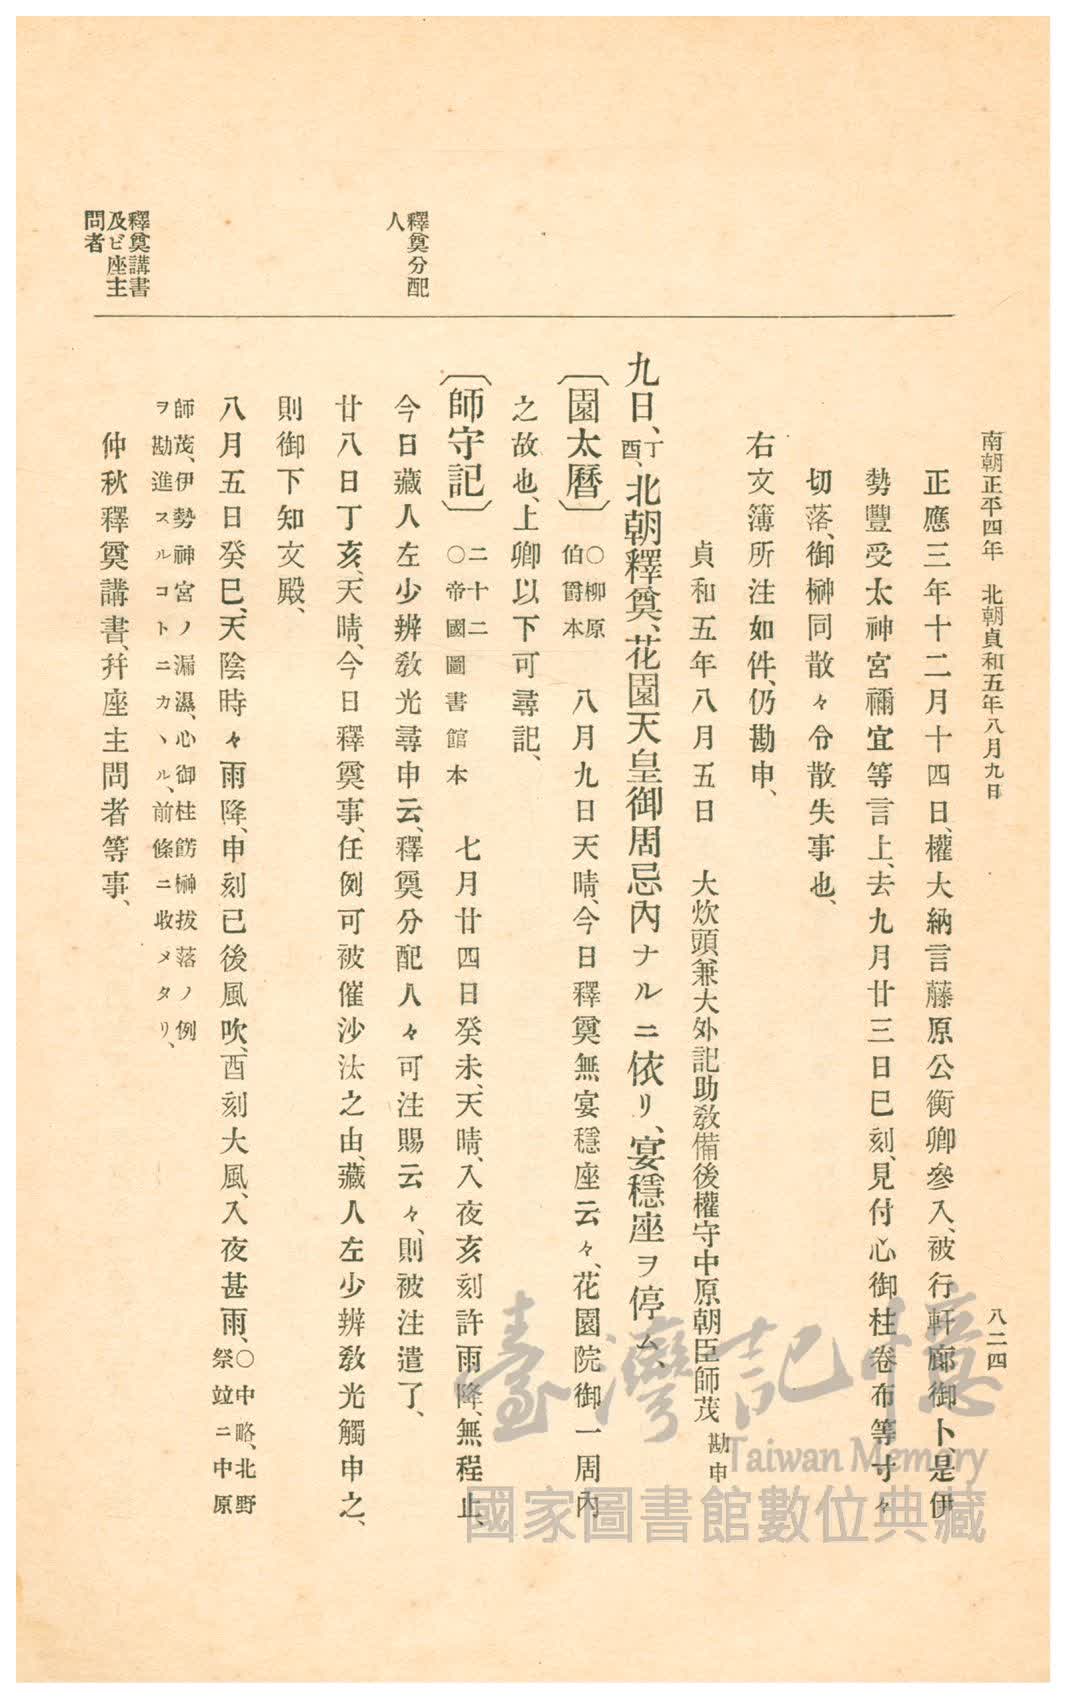 南朝正平四年　北朝貞和五年八月九日
八二四
正應三年十二月十四日、權大納言藤原公衡卿參入、被行軒廊御卜、是伊
勢豐受太神宮禰宜等言上、去九月廿三日巳刻、見付心御柱卷布等寸々
切落、御榊同散々令散失事也、
右文簿所注如件、仍勘申、
貞和五年八月五日　大炊頭兼大外記助敎備後權守中原朝臣師茂勘申
九日、丁酉、北朝釋奠、花園天皇御周忌內ナルニ依リ、宴穩座ヲ停ム、
〔園太曆〕○柳原伯爵本　八月九日天晴、今日釋奠無宴穩座云々、花園院御一周內
之故也、上卿以下可尋記、
〔師守記〕二十二○帝國圖書館本　七月廿四日癸未、天晴、入夜亥刻許雨降、無程止、
釋奠分配
人
今日藏人左少辨敎光尋申云、釋奠分配人々可注賜云々、則被注遣了、
廿八日丁亥、天晴、今日釋奠事、任例可被催沙汰之由、藏人左少辨敎光觸申之、
則御下知文殿、
八月五日癸巳、天陰時々雨降、申刻已後風吹、酉刻大風、入夜甚雨、○中略、北野祭竝ニ中原
師茂、伊勢神宮ノ漏濕、心御柱餝榊拔落ノ例
ヲ勘進スルコトニカヽル、前條ニ收メタリ、
釋奠講書
及ビ座主
問者
仲秋釋奠講書、幷座主問者等事、
臺灣記憶
Taiwan Memory
國家圖書館數位典藏